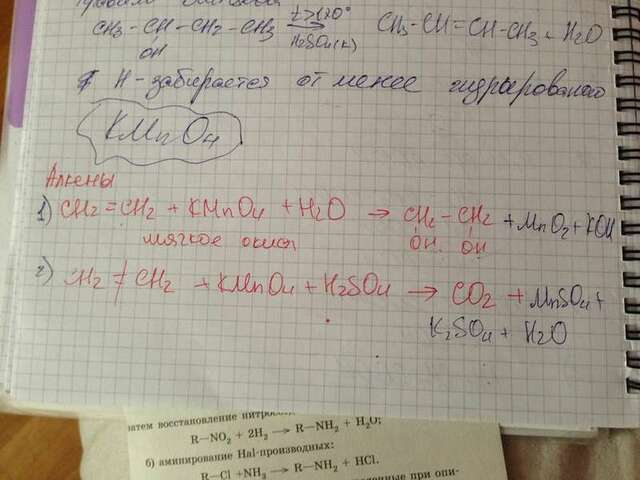 CH3 - CH - CH2 - CH3 t>140° H2SO4(к) CH3 - CH = CH - CH3 + H2O
OH
H - забирается от менее гидрированного
KMnO4
Алкены
1) CH2 = CH2 + KMnO4 + H2O → CH2 - CH2 + MnO2 + KOH
мягкое окисл OH OH
2) CH2 ≠ CH2 + KMnO4 + H2SO4 → CO2 + MnSO4 +
K2SO4 + H2O
затем восстановление
R—NO2 + 2H2 → R—NH2 + H2O;
б) аминирование Hal-производных:
R—Cl + NH3 → R—NH2 + HCl.
при опи-